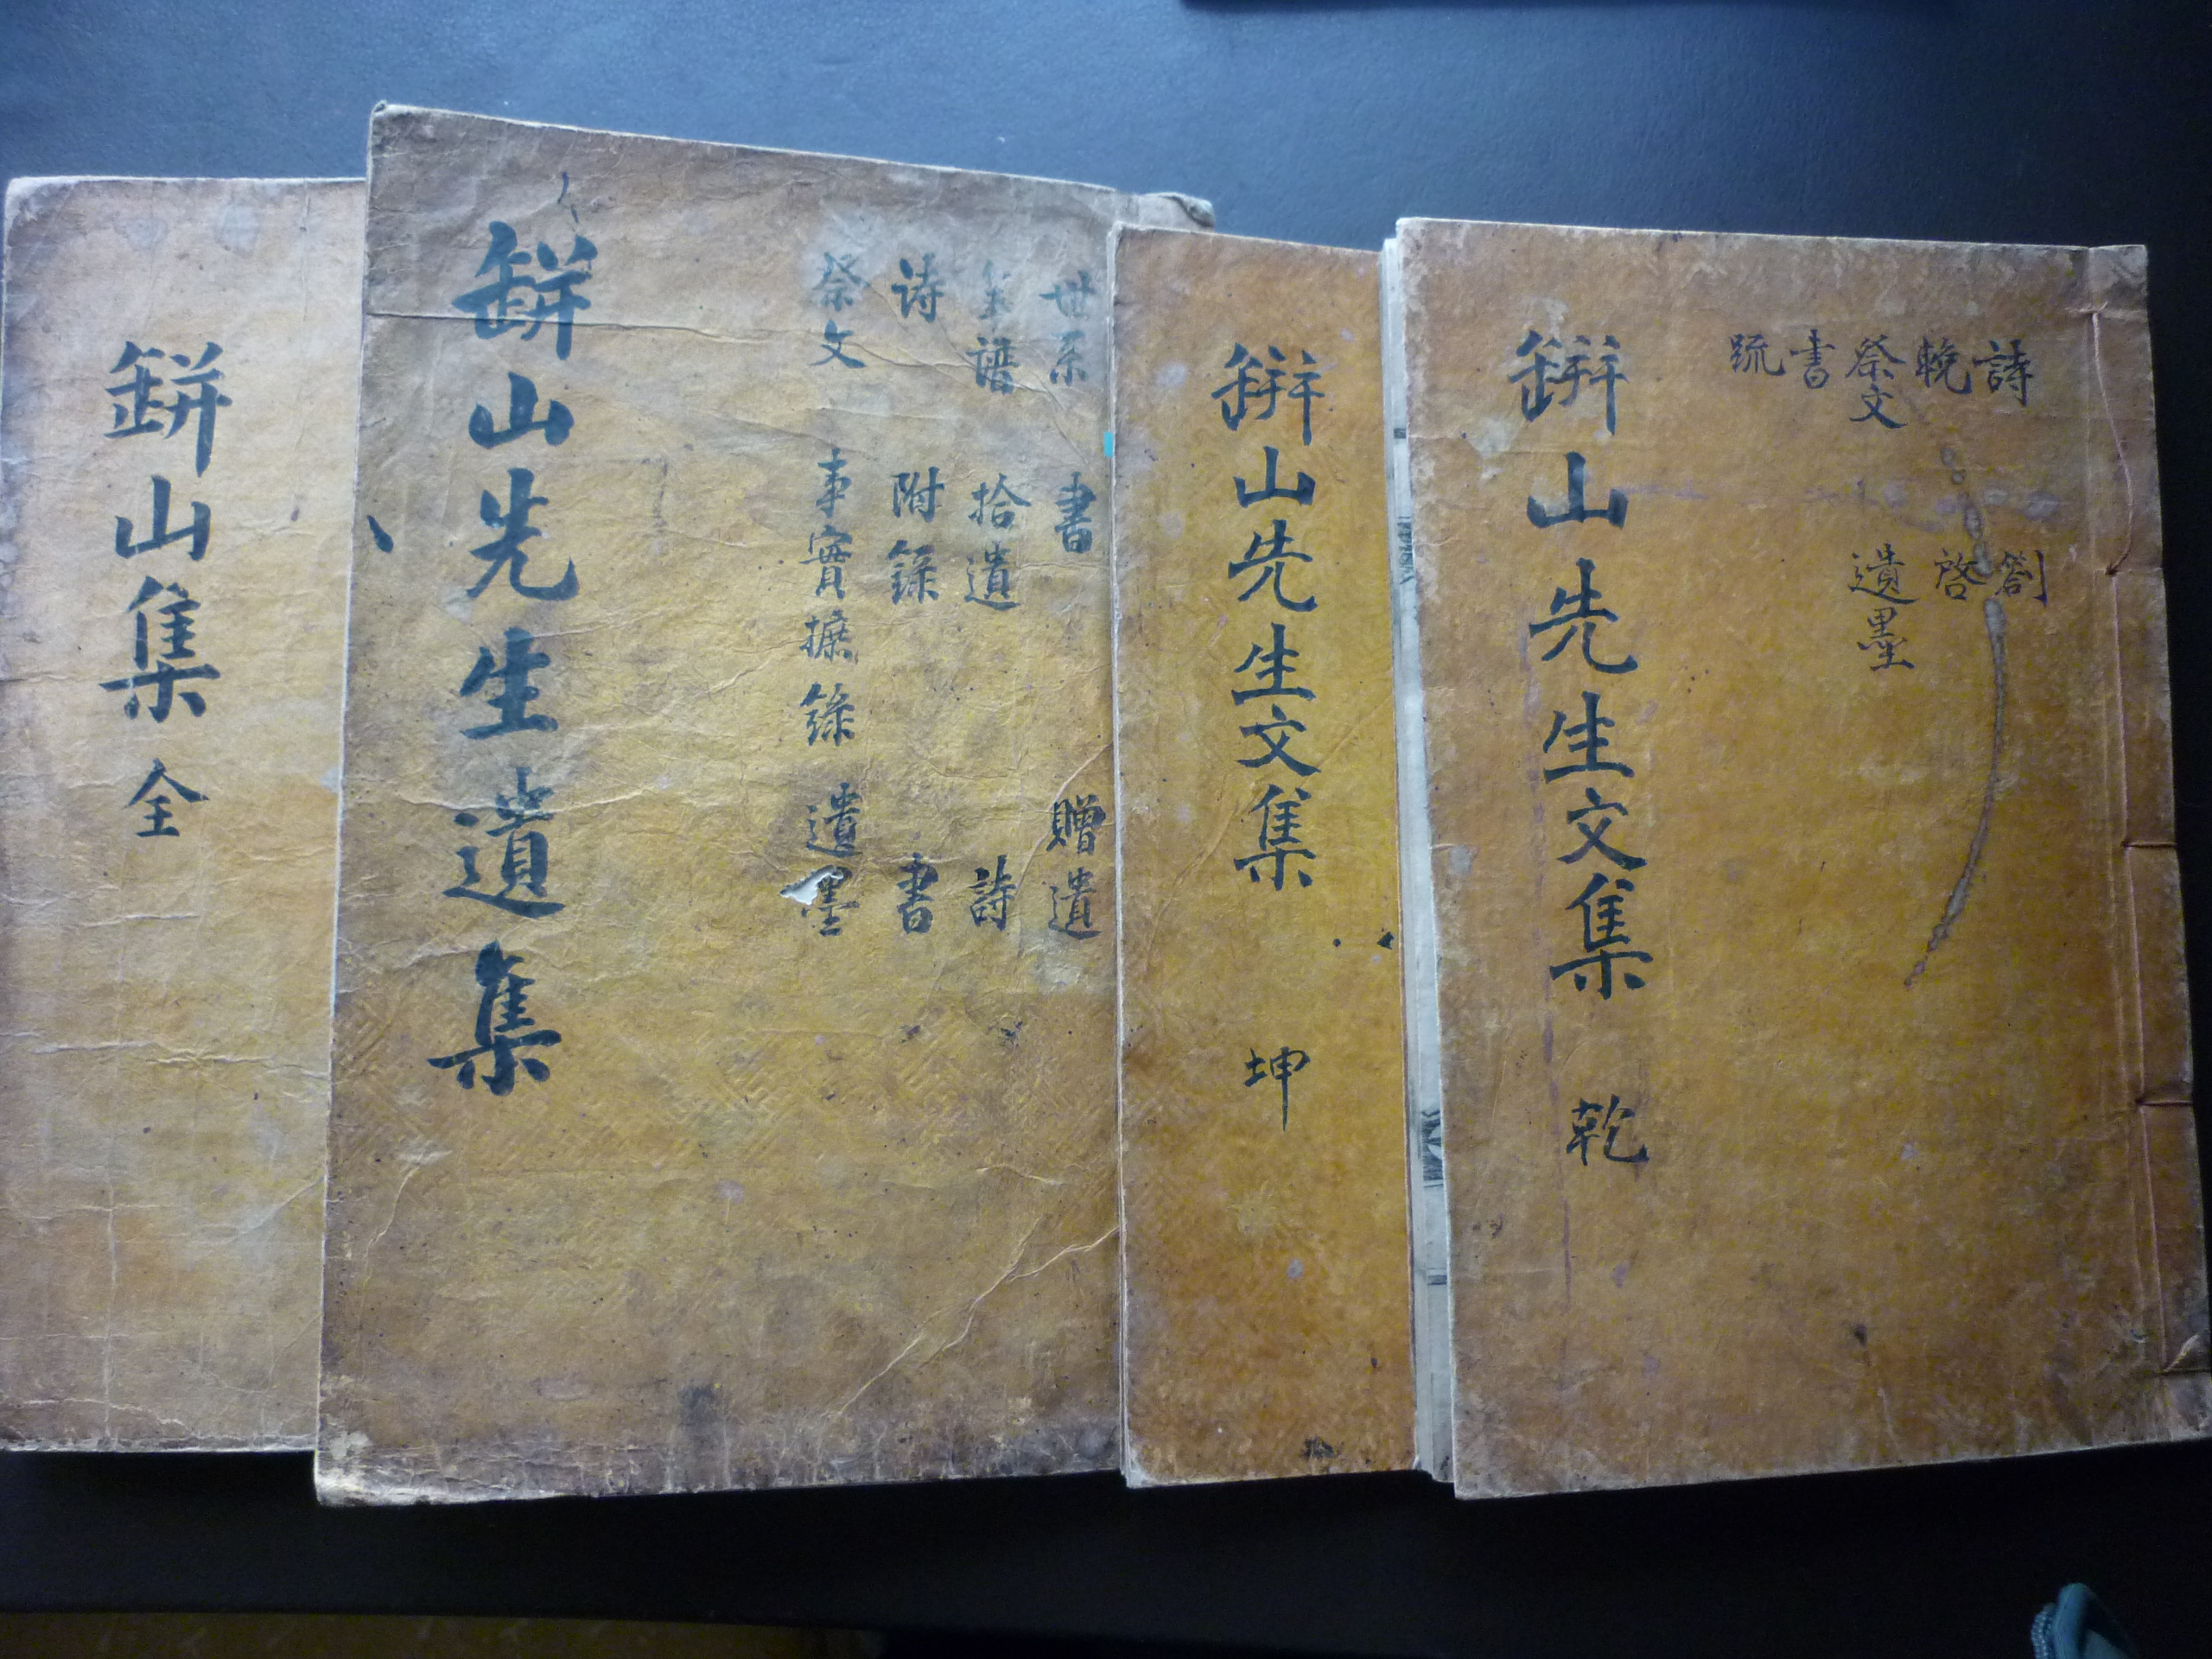 缾山集 全
缾山先生遺集
世系 書 贈遺
年譜 拾遺 詩
诗 附錄 書
祭文 事實摭錄 遺墨
缾山先生文集 坤
缾山先生文集 乾
詩 劄
輓 啓
祭文 遺墨
書
疏